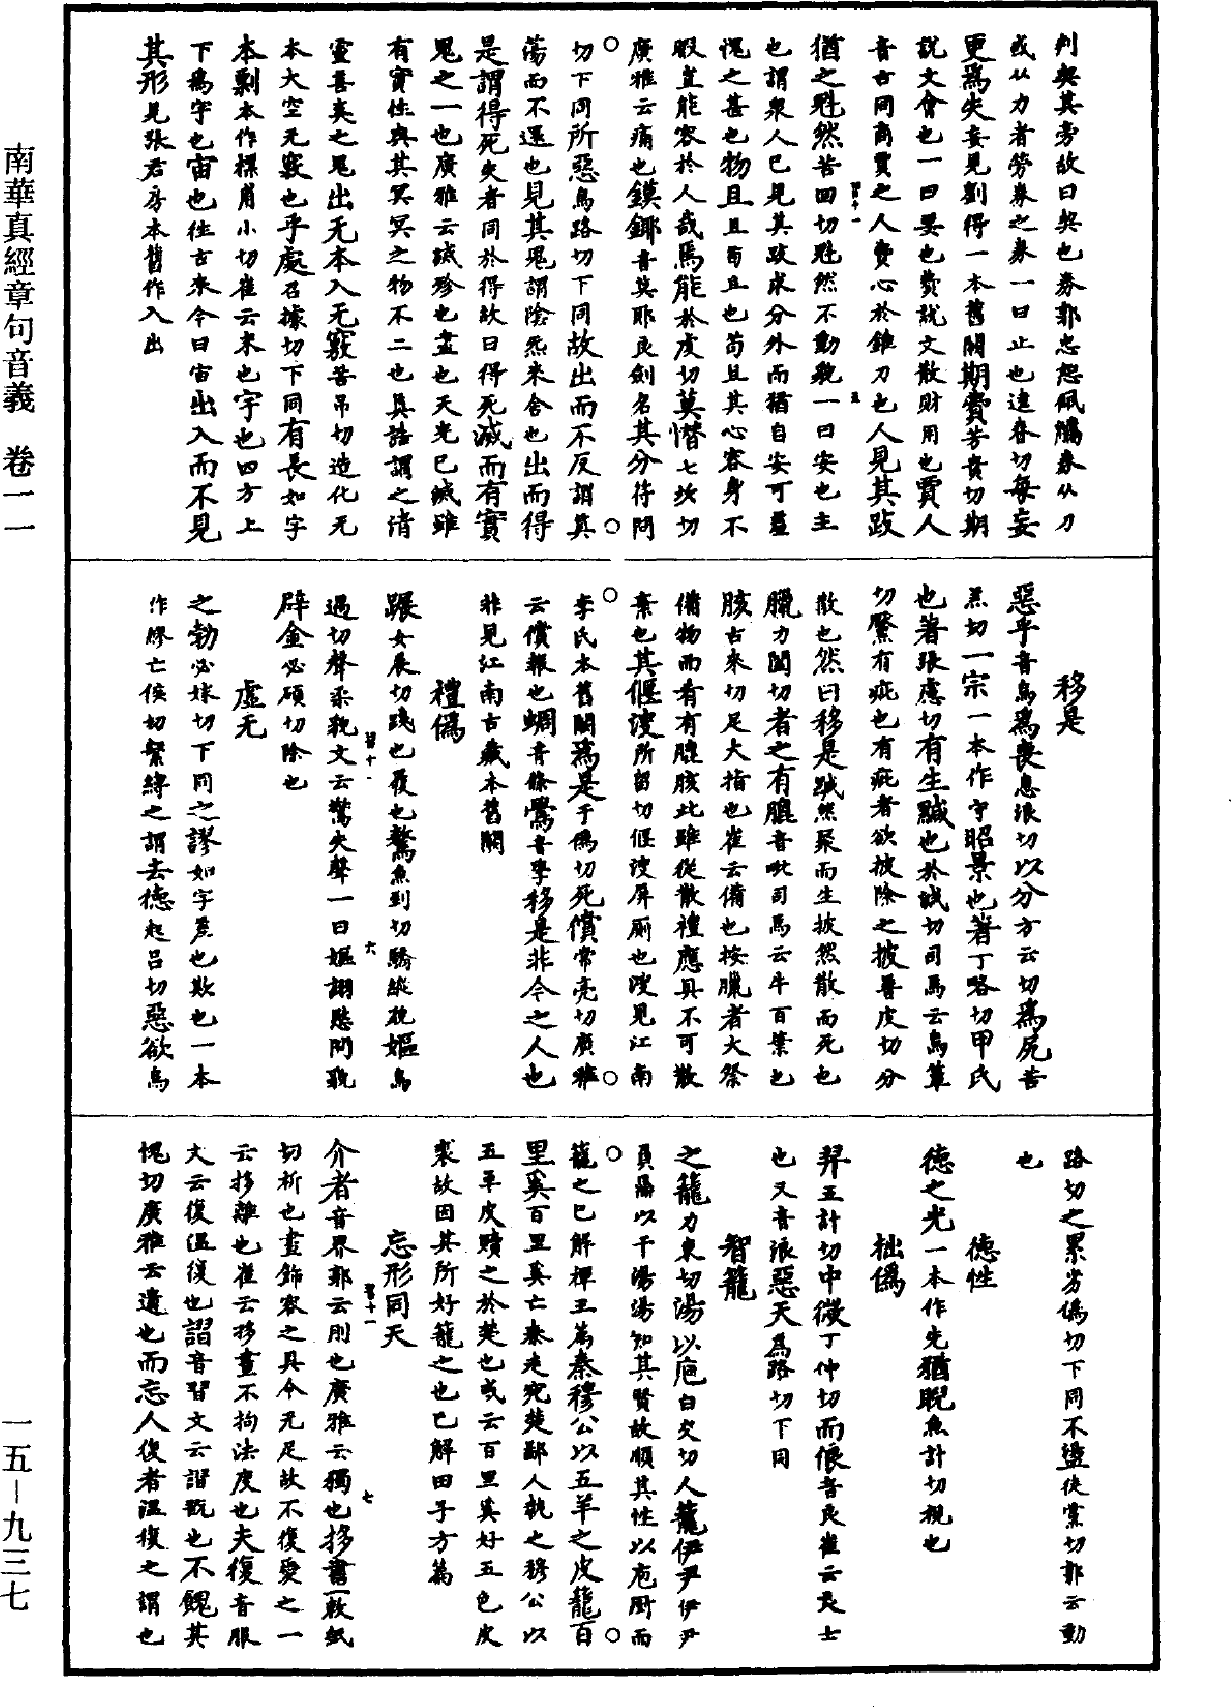 南華真經章句音義　卷一一
一五—九三七
判契其旁故曰契也券郭忠恕佩觿券从刀
或从力者勞券之券一曰止也遠眷切每妄
更爲失妄見劉得一本舊闕期費芳貴切期
說文會也一曰要也費說文散財用也賈人
音古同商賈之人費心於錐刀也人見其跂
猶之魁然苦回切魁然不動貌一曰安也主
也謂眾人已見其跂求分外而猶自安可羞
愧之甚也物且且苟且也苟且其心容身不
暇豈能容於人哉焉能於虔切莫憯七坎切
廣雅云痛也鏌鎁音莫耶良劍名其分符問
切下同所惡烏路切下同故出而不反謂其
蕩而不還也見其鬼謂陰炁來舍也出而得
是謂得死失者同於得故曰得死滅而有實
鬼之一也廣雅云滅殄也盡也天光已滅雖
有實性與其冥冥之物不二也真誥謂之清
靈善爽之鬼出无本入无竅苦吊切造化无
本大空无竅也乎處召據切下同有長如字
本剽本作摽甫小切崔云末也宇也四方上
下爲宇也宙也往古來今曰宙出入而不見
其形見張君房本舊作入出
移是
惡乎音烏爲喪息浪切以分方云切爲尻苦
羔切一宗一本作守昭景也著丁略切甲氏
也著張慮切有生黬也於減切司馬云烏簞
切黶有疵也有疵者欲披除之披普皮切分
散也然曰移是黬然聚而生披然散而死也
臘力闔切者之有膍音毗司馬云牛百葉也
胲古來切足大指也崔云備也按臘者大祭
備物而肴有膍胲此雖從散禮應具不可散
棄也其偃溲所留切偃溲屏廁也溲見江南
李氏本舊闕爲是于僞切死償常亮切廣雅
云償報也蜩音條鷽音學移是非今之人也
非見江南古藏本舊闕
禮僞
蹍女展切踐也履也驁魚到切驕縱貌嫗烏
遇切聲柔貌文云驚失聲一曰嫗詡愍問貌
辟金必碩切除也
虛无
之勃必妹切下同之謬如字差也欺也一本
作膠亡侯切繄縛之謂去德起呂切惡欲烏
路切之累劣僞切下同不盪徒黨切郭云動
也
德性
德之光一本作先猶睨魚計切視也
拙僞
羿五計切中微丁仲切而俍音良崔云良士
也又音浪惡天烏路切下同
智籠
之籠力東切湯以庖白交切人籠伊尹伊尹
負鼎以干湯湯知其賢故順其性以庖廚而
籠之已解禪王篇秦穆公以五羊之皮籠百
里奚百里奚亡秦走宛楚鄙人執之穆公以
五羊皮贖之於楚也或云百里奚好五色皮
裘故因其所好籠之也已解田子方篇
忘形同天
介者音界郭云刖也廣雅云獨也拸畫一敕紙
切析也畫飾容之具今无足故不復愛之一
云拸離也崔云拸畫不拘法度也夫復音服
文云復溫復也謵音習文云謵翫也不餽其
愧切廣雅云遺也而忘人復者溫復之謂也